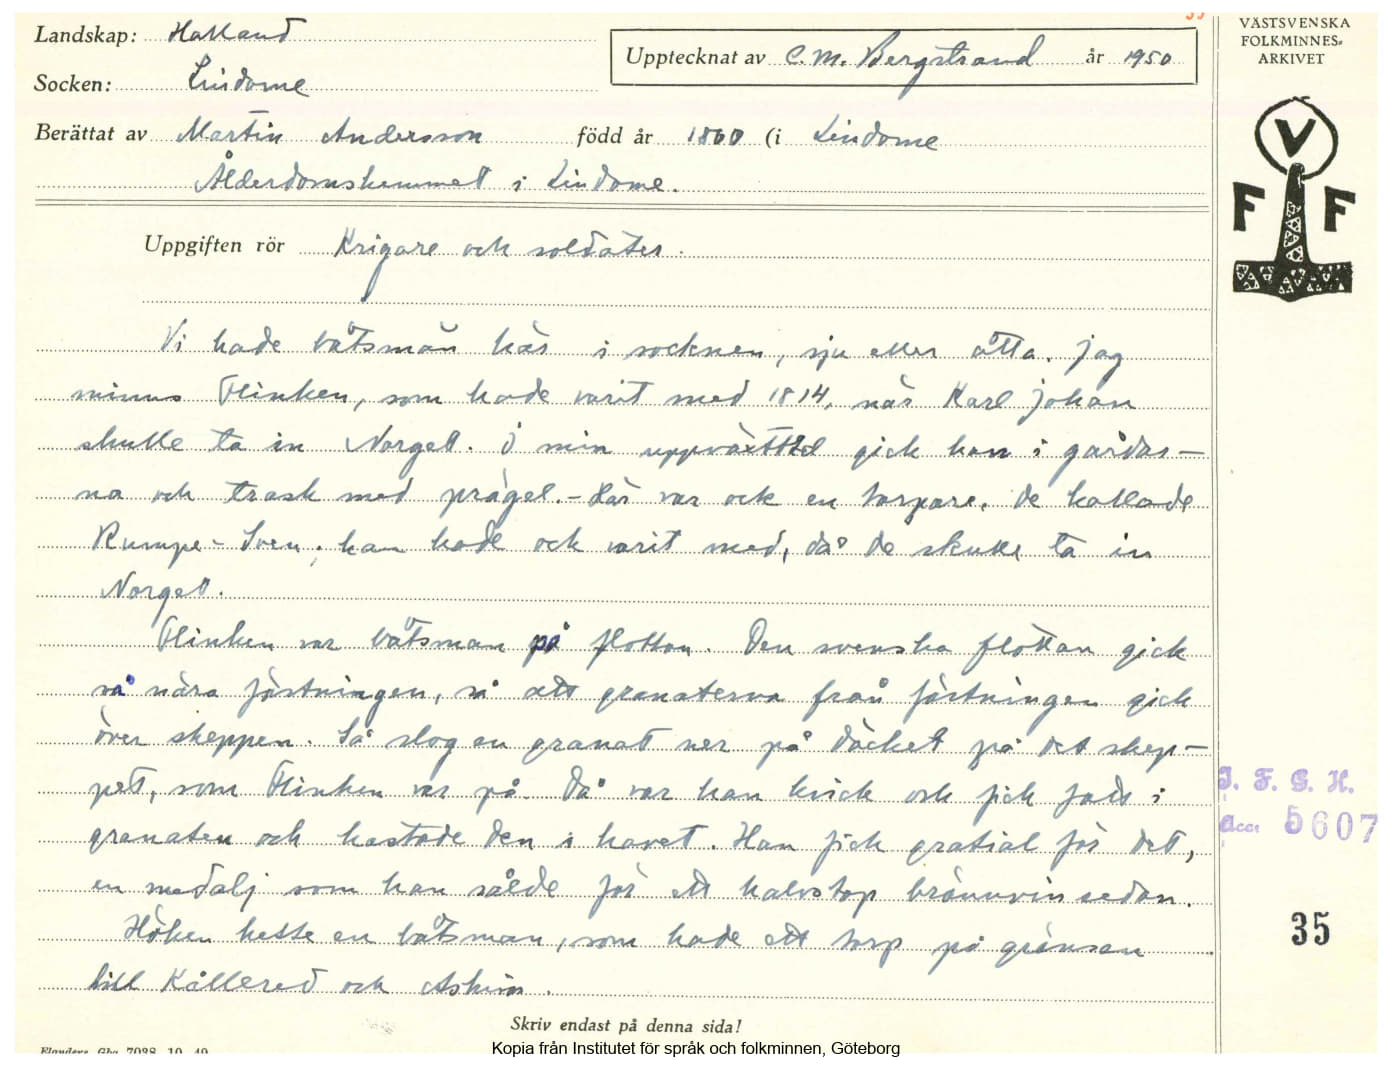 35
Landskap: Halland
Upptecknat av C. M. Bergstrand år 1950
VÄSTSVENSKA
FOLKMINNES-
ARKIVET
Socken: Lindome
Berättat av Martin Andersson född år 1860 (i Lindome
Ålderdomshemmet i Lindome.
V
F F
Uppgiften rör Krigare och soldater.
Vi hade båtsmän här i socknen, sju eller åtta. Jag
minns Flinken, som hade varit med 1814, när Karl Johan
skulle ta in Norget. I min uppväxttid gick han i gårdar-
na och trask med prägel. - Här var ock en torpare. De kallade
Rumpe-Sven, han hade ock varit med, då de skulle ta in
Norget.
Flinken var båtsman på flottan. Den svenska flottan gick
så nära fästningen, så att granaterna från fästningen gick
över skeppen. Så slog en granat ner på däcket på det skep-
pet, som Flinken var på. Då var han kvick och fick fatt i
granaten och kastade den i havet. Han fick gratial för det,
en medalj som han sålde för ett halvstop brännvin sedan.
Höken hette en båtsman, som hade ett torp på gränsen
till Kållered och Askim.
I. F. G. H.
Acc. 5607
35
Skriv endast på denna sida!
Flanders Gbg 7038 10 49
Kopia från Institutet för språk och folkminnen, Göteborg